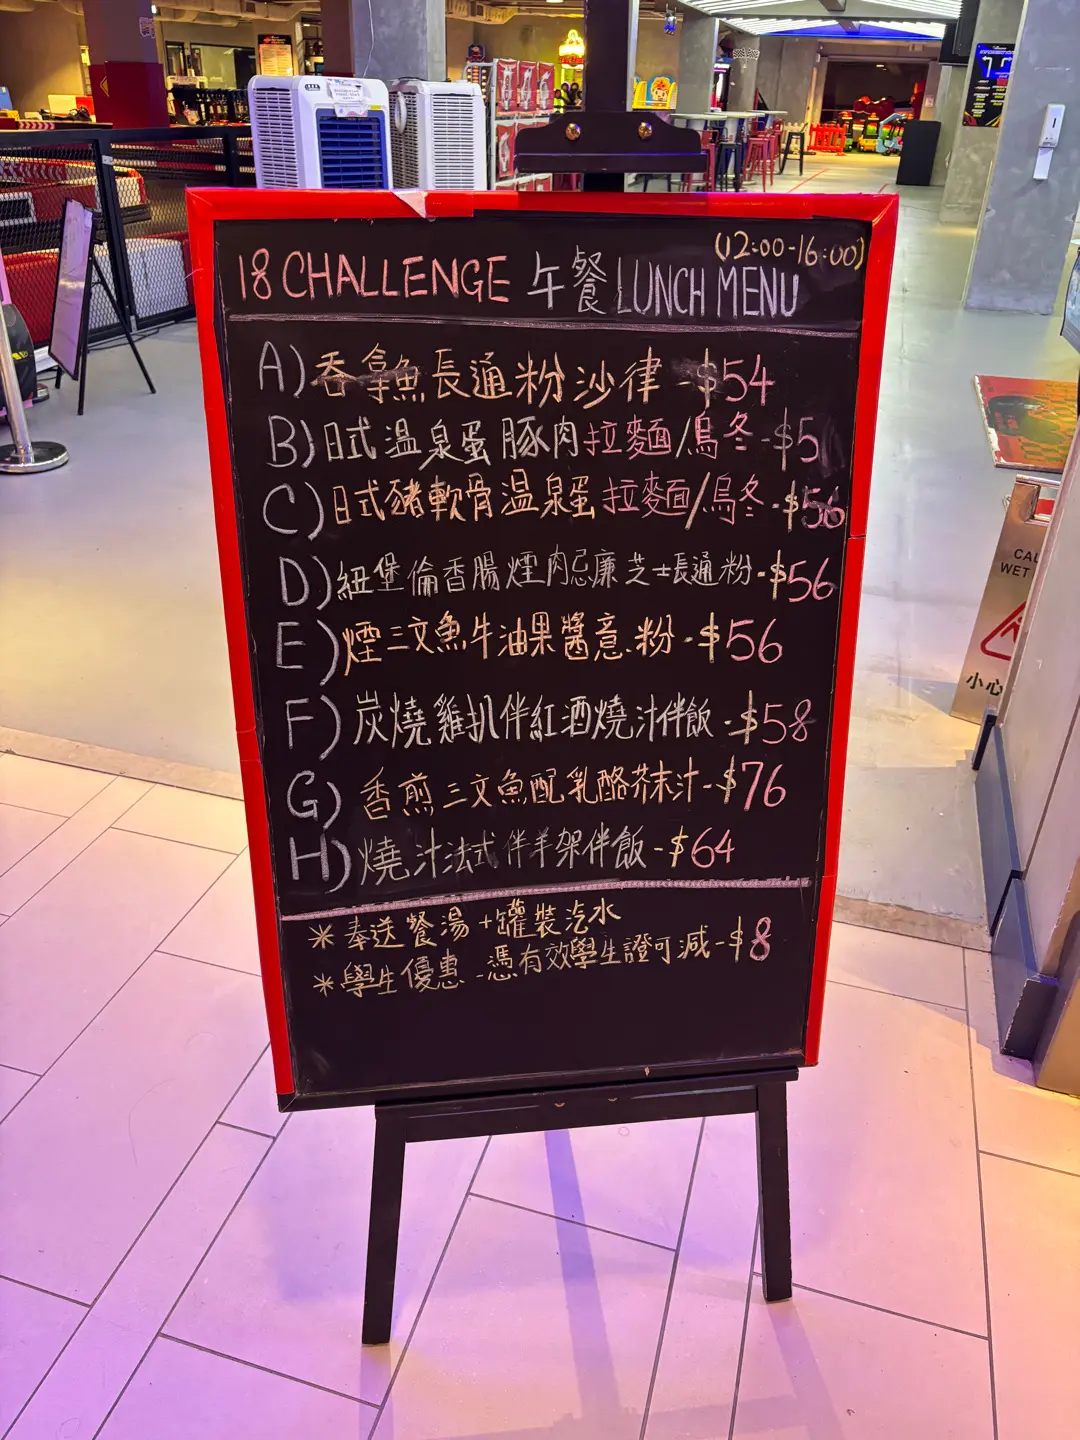 (12:00-16:00)
18 CHALLENGE 午餐 LUNCH MENU
A) 吞拿魚長通粉沙律 - $54
B) 日式溫泉蛋豚肉拉麵/烏冬 - $5
C) 日式豬軟骨溫泉蛋拉麵/烏冬 - $56
D) 紐堡倫香腸煙肉忌廉芝士長通粉 - $56
E) 煙三文魚牛油果醬意粉 - $56
F) 炭燒雞扒伴紅酒燒汁伴飯 - $58
G) 香煎三文魚配乳酪芥末汁 - $76
H) 燒汁法式伴羊架伴飯 - $64
* 奉送餐湯 + 罐裝汽水
* 學生優惠 - 憑有效學生證可減 - $8
CAU
WET
小心